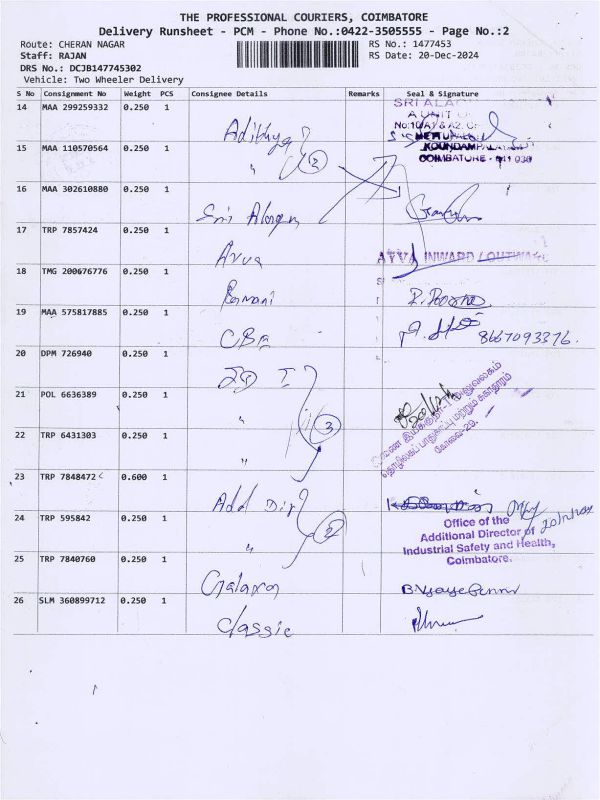 THE PROFESSIONAL COURIERS, COIMBATORE
Delivery Runsheet - PCM - Phone No.:0422-3505555 - Page No.:2
Route: CHERAN NAGAR RS No.: 1477453
Staff: RAJAN RS Date: 20-Dec-2024
DRS No.: DCJB147745302
Vehicle: Two Wheeler Delivery
S No Consignment No Weight PCS Consignee Details Remarks Seal & Signature
14 MAA 299259332 0.250 1 Adithya
15 MAA 110570564 0.250 1 " 2 COIMBATORE
16 MAA 302610880 0.250 1 Sri Alagu
17 TRP 7857424 0.250 1 Avva AVVA INWARD / OUTWARD
18 TMG 200676776 0.250 1 Ramani
19 MAA 575817885 0.250 1 CBE 8667093376.
20 DPM 726940 0.250 1 JD I
21 POL 6636389 0.250 1 "
22 TRP 6431303 0.250 1 " 3 கோவை-29.
23 TRP 7848472 0.600 1 Add Dir
24 TRP 595842 0.250 1 " 2 Office of the
Additional Director of
Industrial Safety and Health,
Coimbatore.
25 TRP 7840760 0.250 1 Galaxy
26 SLM 360899712 0.250 1 Classic